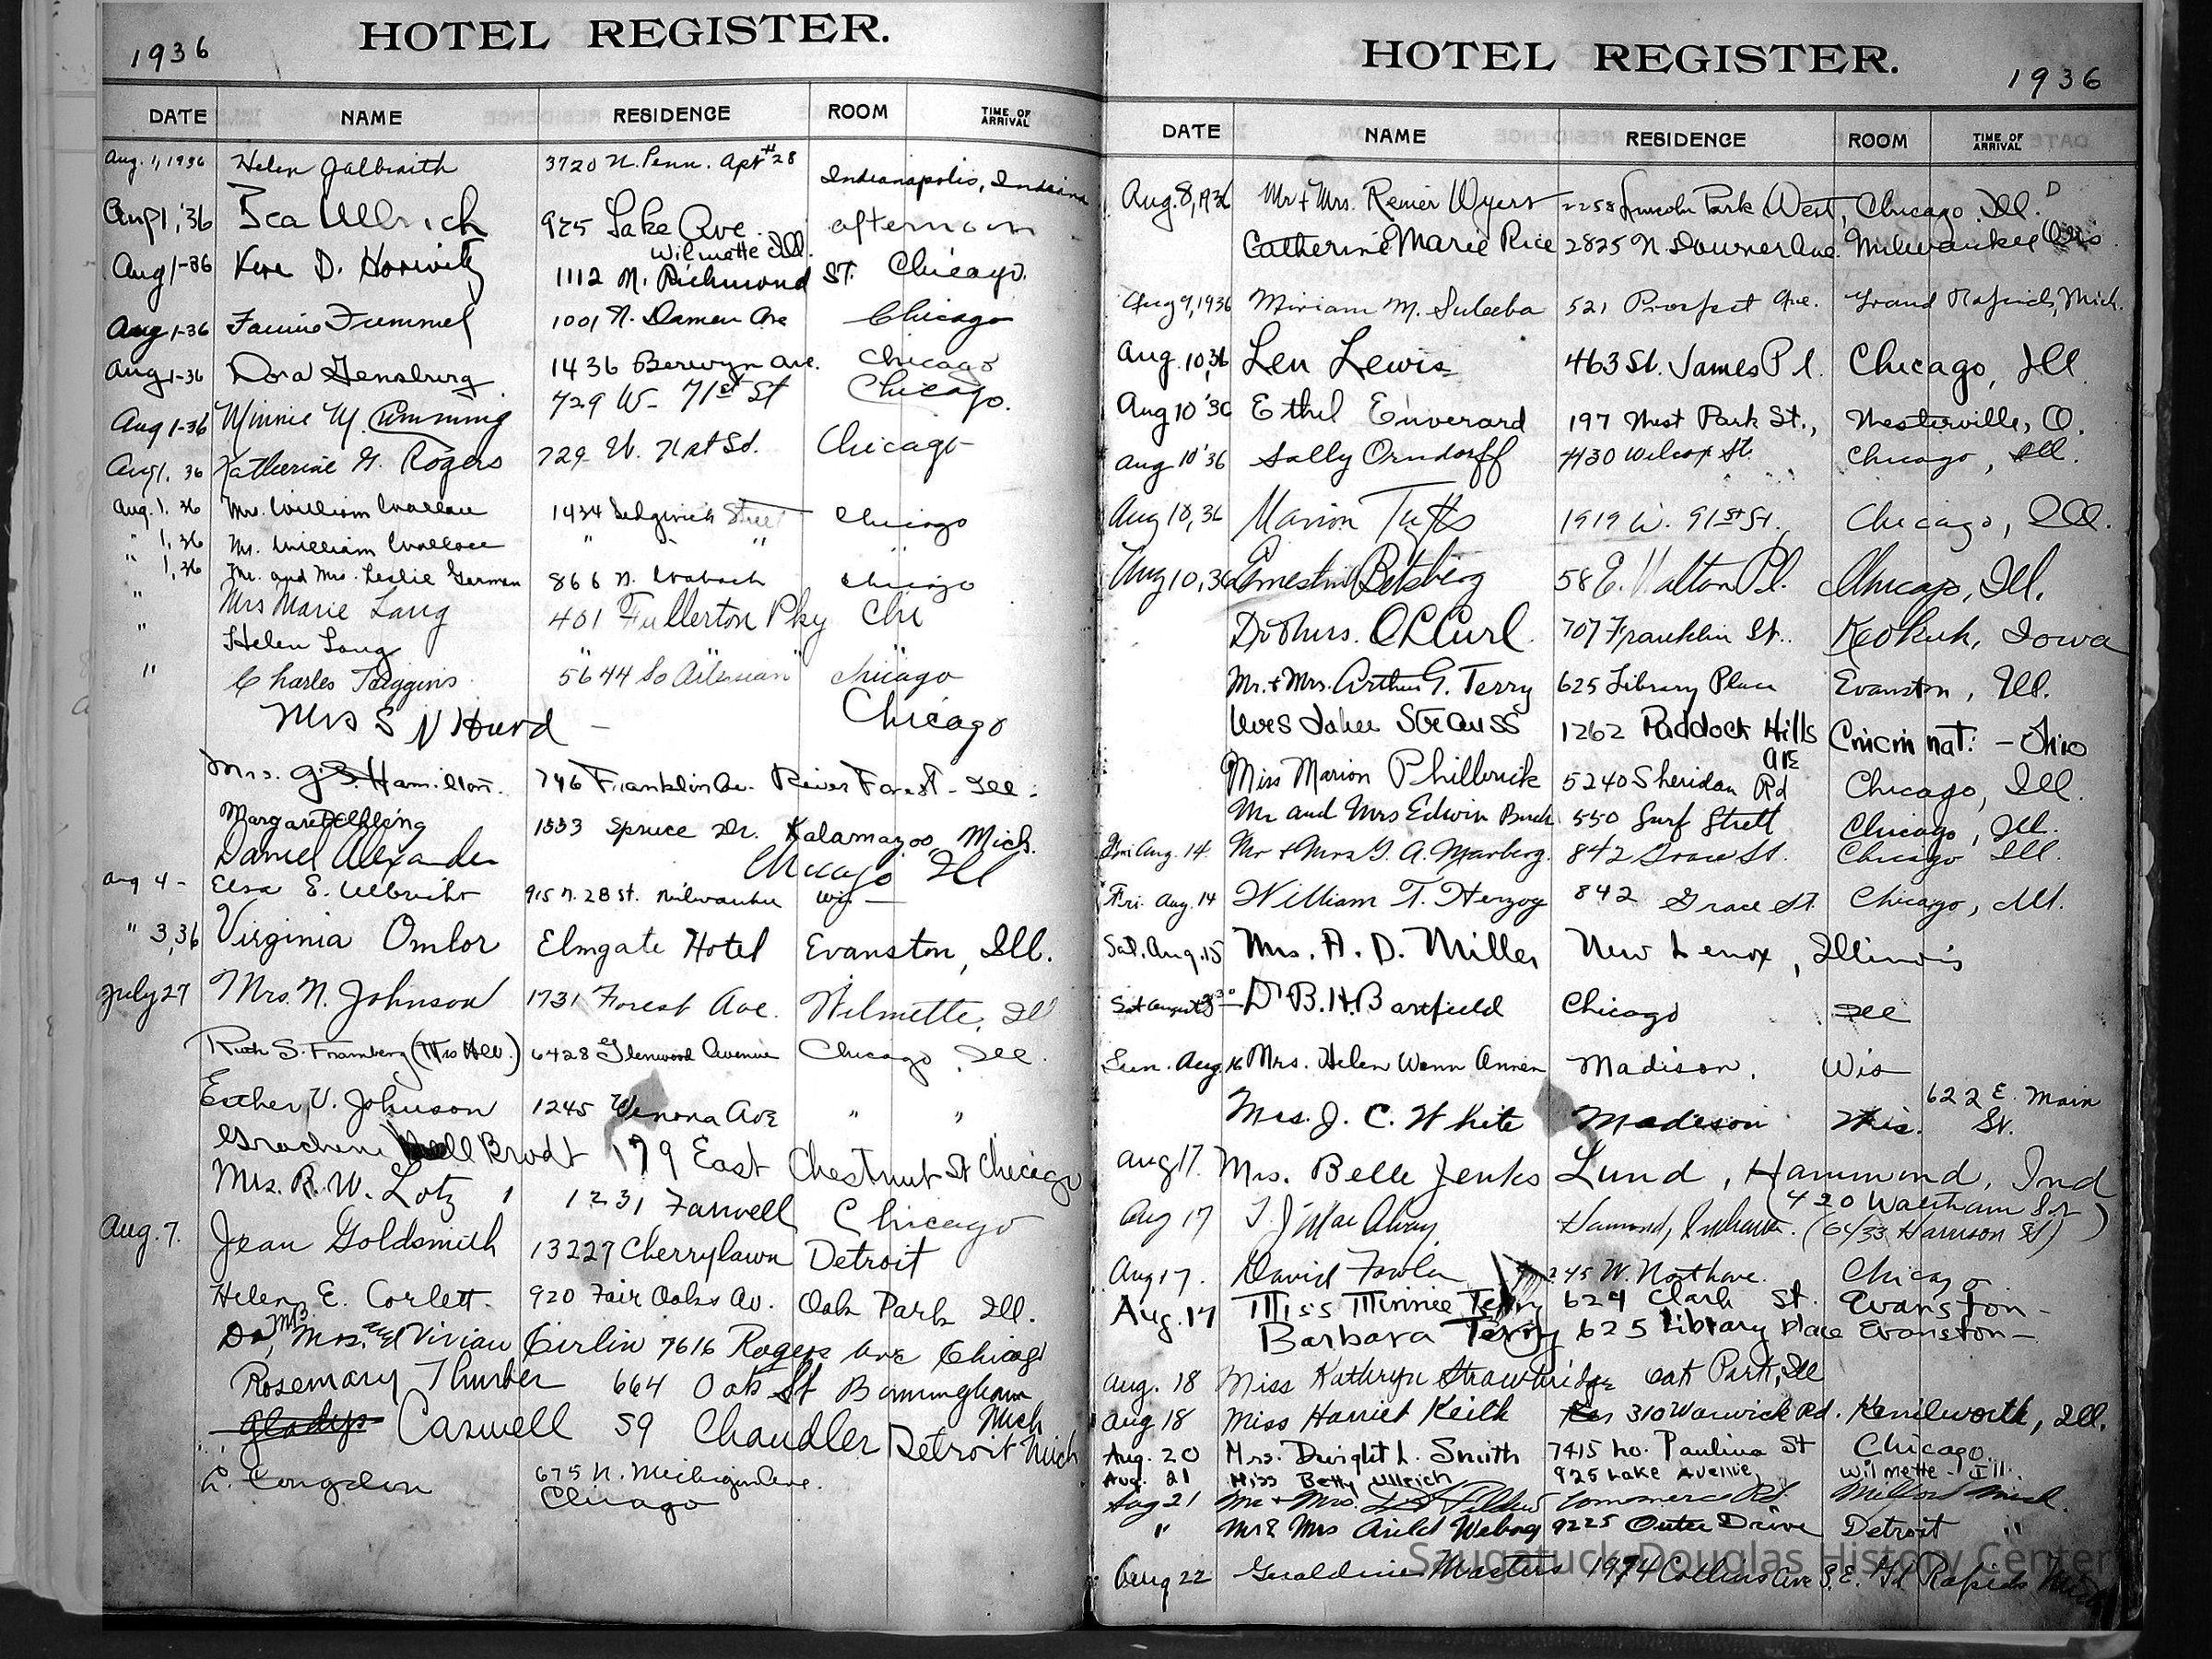 1936
HOTEL REGISTER.
DATE NAME RESIDENCE ROOM TIME OF ARRIVAL
Aug. 1, 1936 Helen Galbraith 3720 N. Penn. Apt #28 Indianapolis, Indiana
Aug 1, '36 Ullrich 925 Lake Ave. afternoon
Wilmette Ill.
Aug 1-36 D. Horwitz 1112 N. Richmond St. Chicago.
Aug 1-36 1001 N. Damen Ave Chicago
Aug 1-36 Dora Gensburg 1436 Berwyn Ave. Chicago
Aug 1-36 Minnie M. Cumming 729 W. 71st St Chicago.
Aug 1, 36 Katherine Rogers 729 W. St. Chicago
Aug. 1, 36 William Wallace 1434 Sedgwick Street Chicago
" 1, 36 William Wallace " " " "
" 1, 36 Mr. and Mrs. Leslie German 866 N. Wabash Chicago
" Mrs Marie Lang 401 Fullerton Pky Chi
" Helen Lang " " " "
" Charles 5644 So Artesian Chicago
Mrs S N Hurd – Chicago
Mrs. G. S. Hamilton. 746 Franklin Av. River Forest - Ill.
Margaret 1553 Spruce Dr. Kalamazoo Mich.
Daniel Alexander Chicago Ill
Aug 4 - Elsa E. Ulbricht 915 N. 28 St. Milwaukee Wis –
" 3, 36 Virginia Omlor Elmgate Hotel Evanston, Ill.
July 27 Mrs. N. Johnson 1731 Forest Ave. Wilmette, Ill
Ruth S. Framberg 6428 Glenwood Avenue Chicago, Ill.
Esther V. Johnson 1245 Winona Ave " "
Brodt 179 East Chestnut St Chicago
Mrs. R. W. Lotz 1231 Farwell Chicago
Aug. 7. Jean Goldsmith 13227 Cherrylawn Detroit
Helen E. Corlett. 920 Fair Oaks Av. Oak Park Ill.
Vivian Girlin 7616 Rogers Ave Chicago
Rosemary Thurber 664 Oak St Birmingham
Mich
Gladys Caswell 59 Chandler Detroit Mich
L. Congdon 675 N. Michigan Ave.
Chicago
HOTEL REGISTER.
1936
DATE NAME RESIDENCE ROOM TIME OF ARRIVAL
Aug. 8, 1936 Mr + Mrs. Renier Wyers 2258 Lincoln Park West, Chicago Ill.
Catherine Marie Rice 2825 N Downer Ave. Milwaukee Wis
Aug 9, 1936 Miriam M. 521 Prospect Ave. Grand Rapids, Mich.
Aug. 10, 36 Len Lewis 463 St. James Pl. Chicago, Ill
Aug 10 '36 Ethel Enverard 197 West Park St., Westerville, O.
Aug 10 '36 Sally Orndorff 4430 Wilcox St. Chicago, Ill.
Aug 10, 36 Marion Tufts 1919 W. 91st St. Chicago, Ill.
Aug 10, 36 58 E. Walton Pl. Chicago, Ill.
Dr & Mrs. O C Curl 707 Franklin St. Keokuk, Iowa
Mr. + Mrs. Arthur G. Terry 625 Library Place Evanston, Ill.
Strauss 1262 Paddock Hills Cincinnati - Ohio
Ave
Miss Marion Philbrick 5240 Sheridan Rd Chicago, Ill.
Mr and Mrs Edwin 550 Surf Strett Chicago, Ill.
Fri. Aug. 14 Mr + Mrs G. A. Marberg. 842 Grace St. Chicago Ill.
Fri. Aug. 14 William T. Herzog 842 Grace St Chicago, Ill.
Sat. Aug. 15 Mrs. A. D. Miller New Lenox, Illinois
Sat August Dr B. H. Barefield Chicago Ill
Sun. Aug. 16 Mrs. Helen Wenn Annen Madison, Wis
622 E. Main St.
Mrs. J. C. White Madison Wis.
Aug 17. Mrs. Belle Jenks Lund, Hammond, Ind
420 Waltham St
Aug 17 Hammond, Indiana. (6433 Harrison St)
Aug 17. David Fowler 245 W. North Ave. Chicago
Aug. 17 Miss Minnie Terry 624 Clark St. Evanston -
Barbara Terry 625 Library Place Evanston -
Aug. 18 Miss Kathryn Strawbridge Oak Park, Ill
Aug 18 Miss Harriet Keith 310 Warwick Rd. Kenilworth, Ill.
Aug. 20 Mrs. Dwight L. Smith 7415 No. Paulina St Chicago
Aug. 21 Miss Betty Ullrich 925 Lake Avenue, Wilmette - Ill.
Aug 21 Mr + Mrs. Commerce Rd. Milford Mich.
" Mr & Mrs 9225 Outer Drive Detroit "
Aug 22 Geraldine Masters 1974 Collins Ave S.E. Gd Rapids Mich
Saugatuck-Douglas History Center